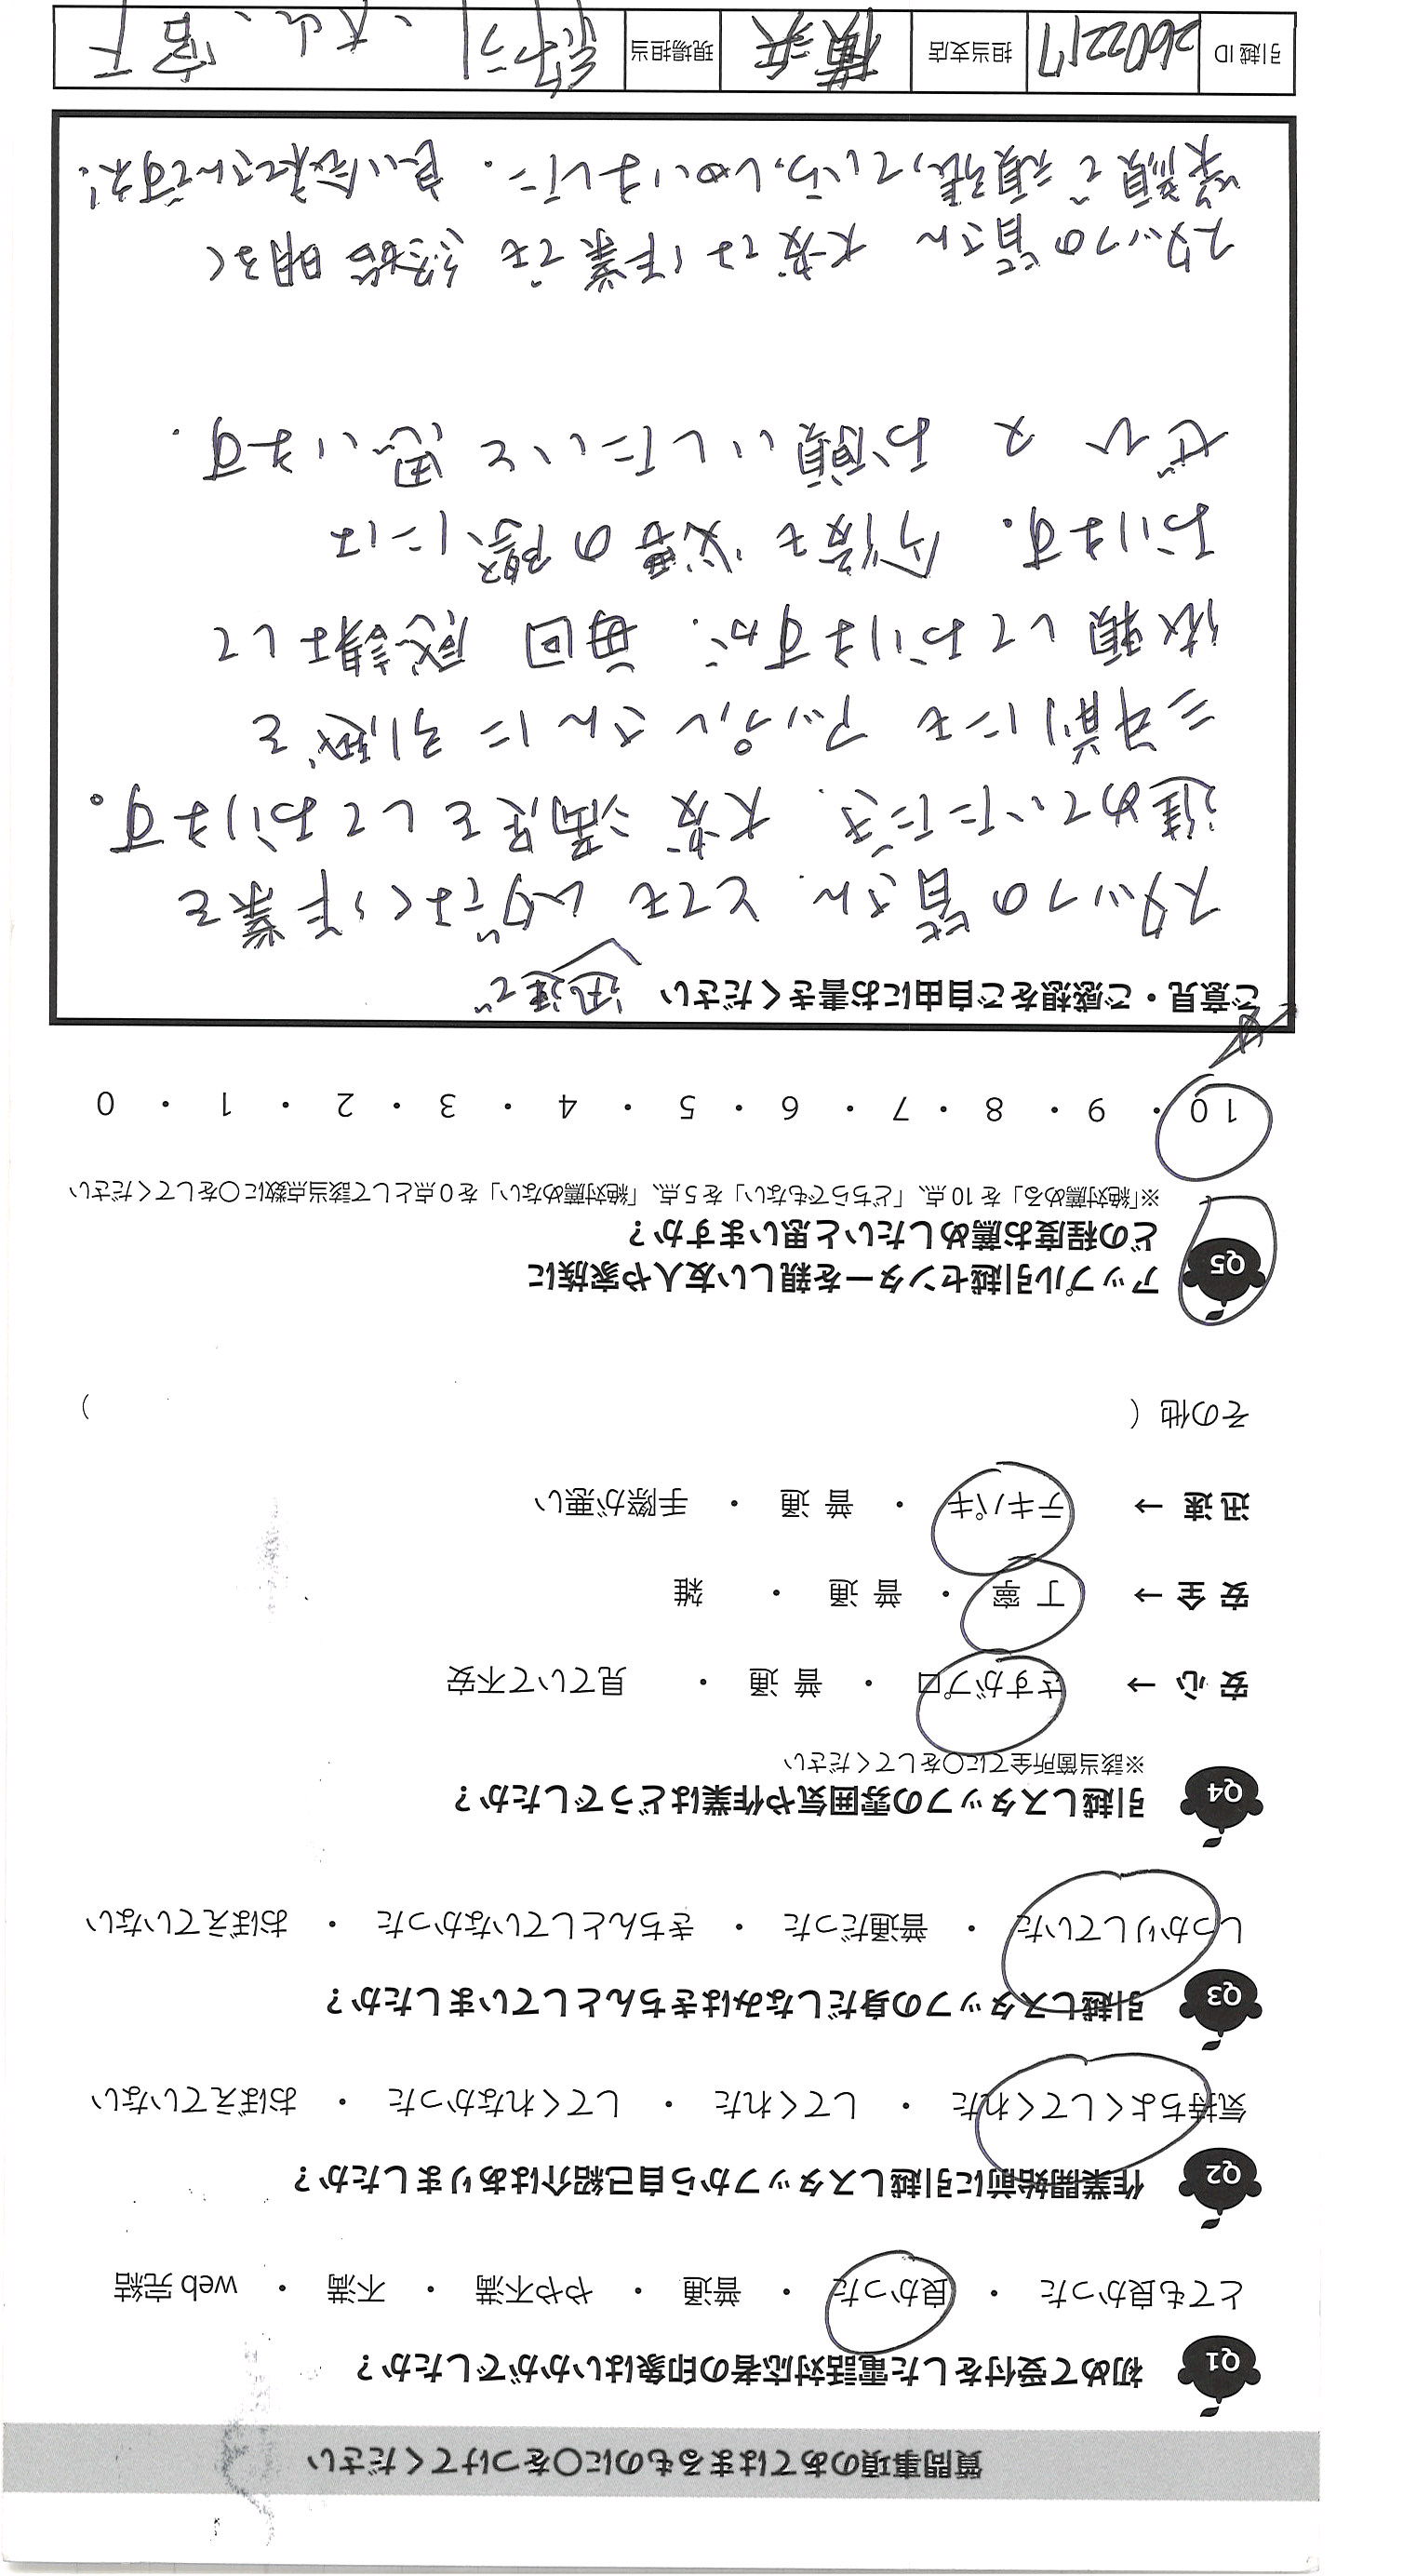 質問事項のあてはまるものに〇をつけてください
Q1 初めて受付をした電話対応者の印象はいかがでしたか？
とても良かった ・ 良かった ・ 普通 ・ やや不満 ・ 不満 ・ web 完結
Q2 作業開始前に引越しスタッフから自己紹介はありましたか？
気持ちよくしてくれた ・ してくれた ・ してくれなかった ・ おぼえていない
Q3 引越しスタッフの身だしなみはきちんとしていましたか？
しっかりしていた ・ 普通だった ・ きちんとしていなかった ・ おぼえていない
Q4 引越しスタッフの雰囲気や作業はどうでしたか？
※該当箇所全てに〇をしてください
安 心 → さすがプロ ・ 普 通 ・ 見ていて不安
安 全 → 丁 寧 ・ 普 通 ・ 雑
迅 速 → テキパキ ・ 普 通 ・ 手際が悪い
その他（ ）
Q5 アップル引越センターを親しい友人や家族に
どの程度お薦めしたいと思いますか？
※「絶対薦める」を 10 点、「どちらでもない」を 5 点、「絶対薦めない」を 0 点として該当点数に〇をしてください
10 ・ 9 ・ 8 ・ 7 ・ 6 ・ 5 ・ 4 ・ 3 ・ 2 ・ 1 ・ 0
ご意見・ご感想をご自由にお書きください
迅速で
スタッフの皆さん、とても ムダなく作業を
進めていただき、大変満足をしております。
三年前にも アップルさんに引越を
依頼しておりますが、毎回 感謝して
おります。 今後も必要の際には
ぜひ 又 お願いしたいと思います.
スタッフの皆さん 大変な作業でも 終始 明るく
笑顔で頑張っていらっしゃいました. 良い会社さんですね!
引越 ID 26022217 担当支店 横浜 現場担当 大山、宮下